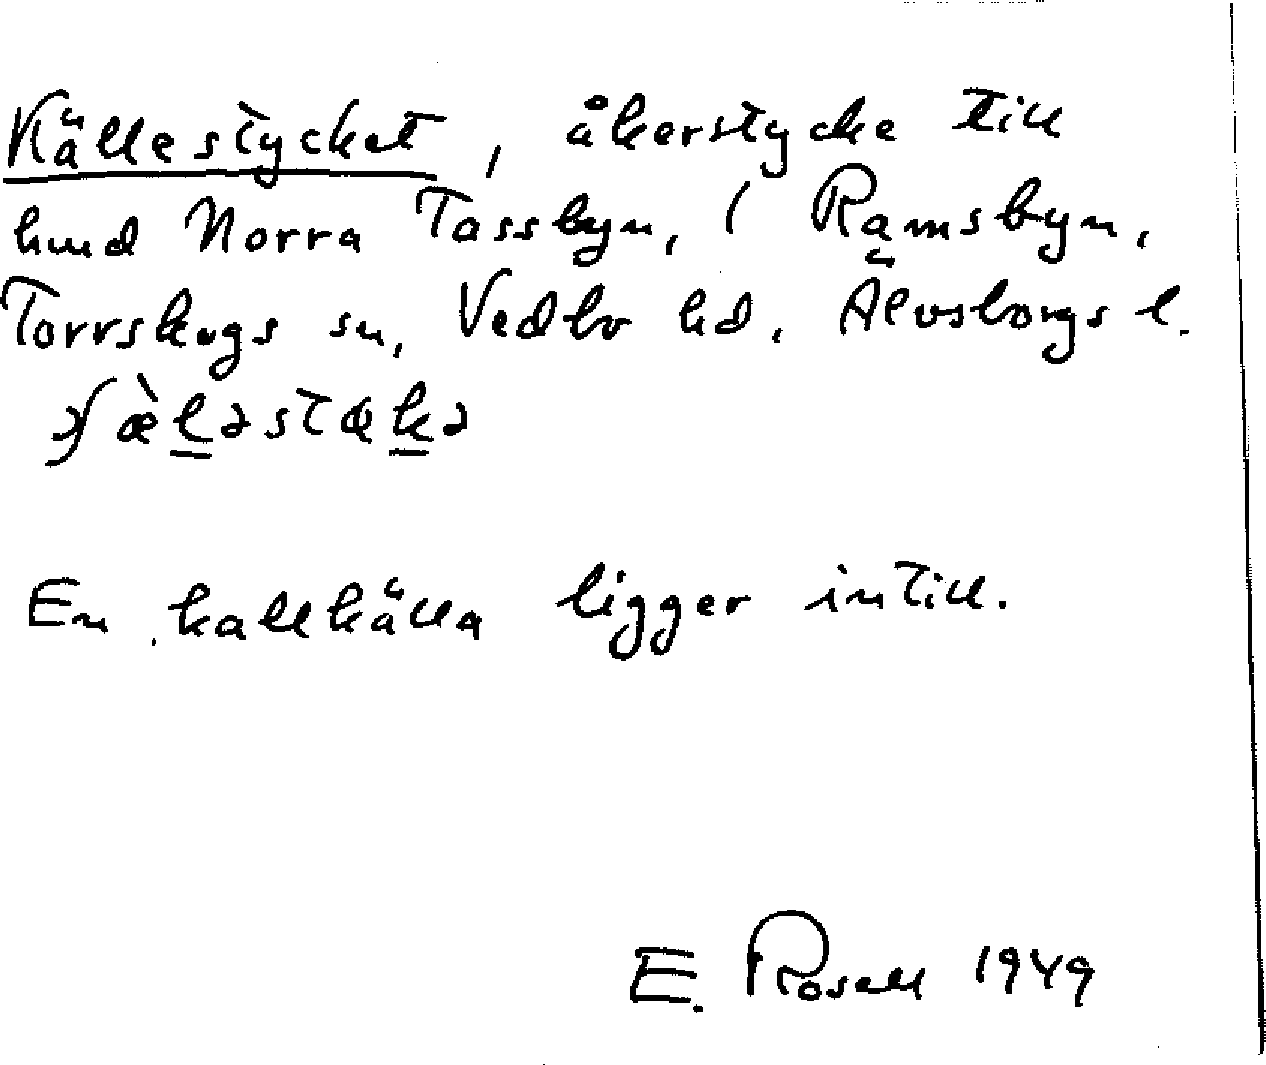 Källestycket, åkerstycke till
hmd Norra Tassbyn, ( Ramsbyn,
Torrskogs sn, Vedbo hd, Älvsborgs l.
En kallkälla ligger intill.
E. Rosell 1949